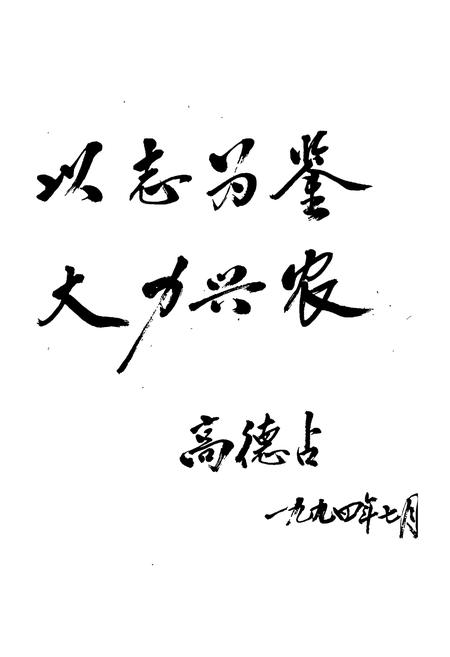 以志为鉴
大力兴农
高德占
一九九四年七月